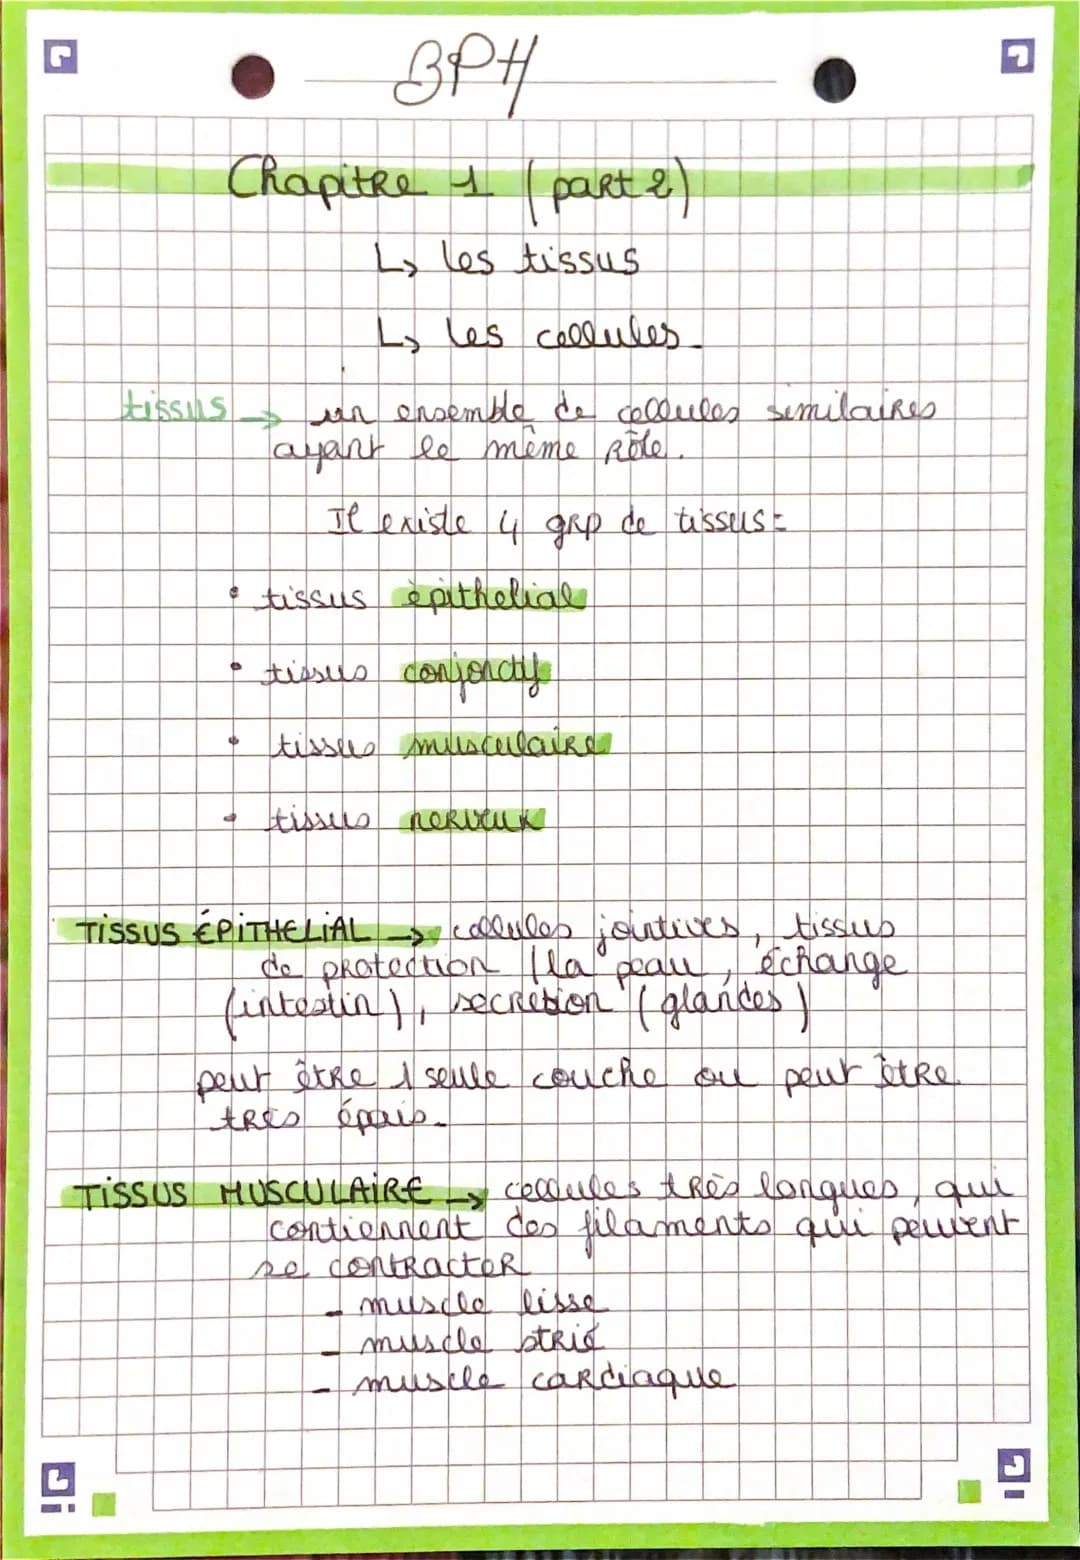 BPH
Chapitre 1 (part 2)
↳ les tissus
↳ les cellules.
tissus → un ensemble de cellules similaires
ayant le même rôle.
Il existe 4 grp de tissus :
• tissus épithelial
• tissus conjonctif
• tissus musculaire
• tissus nerveux
TISSUS ÉPITHELIAL → cellules jointives, tissus
de protection (la peau, échange
(intestin), secretion (glandes)
peut être 1 seule couche ou peut être
très épais.
TISSUS MUSCULAIRE → cellules très longues, qui
contiennent des filaments qui peuvent
se contracter
- muscle lisse
- muscle strié
- muscle cardiaque